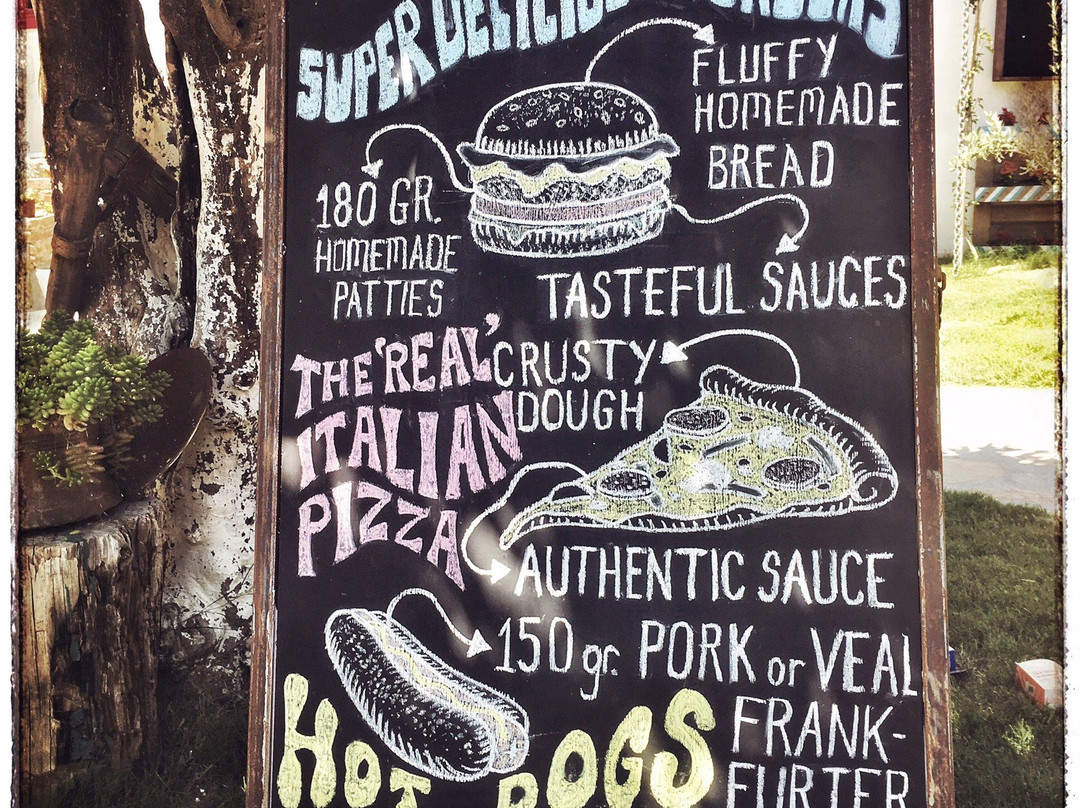 SUPER DELICIOUS BURGERS
FLUFFY
HOMEMADE
BREAD
180 GR.
HOMEMADE
PATTIES
TASTEFUL SAUCES
THE 'REAL'
ITALIAN
PIZZA
CRUSTY
DOUGH
AUTHENTIC SAUCE
150 gr. PORK or VEAL
FRANK-
FURTER
HOT DOGS